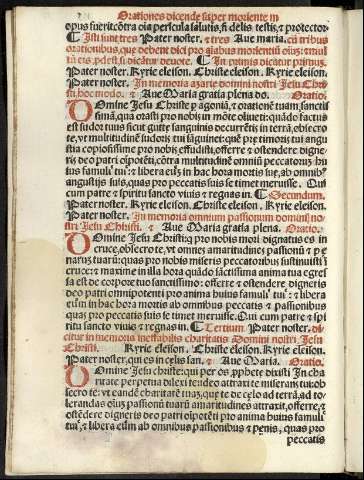 Orationes dicende super moriente m
opus fuerit cõtra oĩa pericula salutis, fidelis testis, & protector
¶ Isti sunt tres Pater noster, & tres Aue maria, cũ tribus
orationibus, que debent dici pro aĩabus morientiũ
eis, p dest, si dicãtur deuote. ¶ In primis dicatur primus.
Pater noster. Kyrie eleison. Christe eleison. Kyrie eleison.
Pater noster. In memoria agonie domini nostri Jesu Chri
sti, hoc modo. & Aue Maria gratia plena do. Oratio.
DOmine Jesu Christe p agoniã, & orationẽ tuam, sanctis
simã, qua orasti pro nobis in mõte oliueti: quãdo factus
est sudor tuus sicut gutte sanguinis decurrẽtis in terrã, obsecro
te, vt multitudinẽ sudoris tui sãguinei: quẽ pre timoris tui angu
stia copiosissime pro nobis effudisti, offerre & ostendere digne
ris deo patri oĩpotẽti, cõtra multitudinẽ omniũ peccatorũ hu
ius famuli tui: & libera eũ in hac hora mortis sue, ab omnibꝰ
angustijs suis, quas pro peccatis suis se timet meruisse. Qui
cum patre & spiritu sancto viuis & regnas in. ¶ Secundum.
Pater noster. Kyrie eleison. Christe eleison. Kyrie eleison.
Pater noster. In memoria omnium passionum domini no
stri Jesu Christi. & Aue Maria gratia plena. Oratio.
DOmine Jesu Christe: q pro nobis mori dignatus es in
cruce, obsecro te, vt omnes amaritudines passionũ & pe
narũ tuarũ: quas pro nobis miseris peccatoribus sustinuisti ĩ
cruce: & maxime in illa hora quãdo sãctissima anima tua egres
sa est de corpore tuo sanctissimo: offerre & ostendere digneris
deo patri omnipotenti pro anima huius famuli tui: & libera
eũm in hac hora mortis ab omnibus peccatis & passionibus
quas pro peccatis suis se timet meruisse. Qui cum patre & spi
ritu sancto viuis & regnas in. ¶ Tertium. Pater noster, di
citur in memoria ineffabilis charitatis Domini nostri Jesu
Christi. Kyrie eleison. Christe eleison. Kyrie eleison.
Pater noster, qui es in celis san. & Aue Maria. Oratio.
DOmine Jesu Christe: qui per os, pphete dixisti In cha
ritate perpetua dilexi te: ideo attraxi te miserans tui: ob
secro te: vt eandẽ charitatẽ tuaʒ, que te de celo ad terrã, ad to
lerandas oẽs passionũ tuarũ amaritudines attraxit, offerre, &
ostẽdere digneris deo patri oĩpotẽti pro anima huius famuli
tui, & libera eũm ab omnibus passionibus & penis, quas pro
peccatis